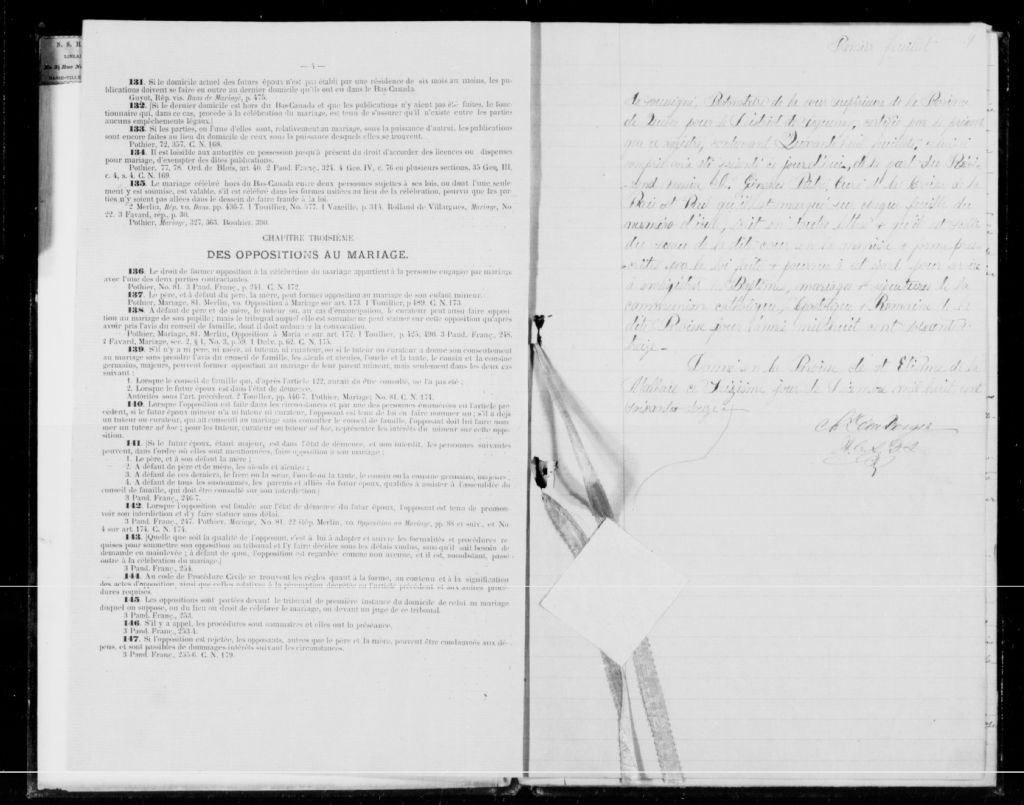 — 4 —
131. Si le domicile actuel des futurs époux n'est pas établi par une résidence de six mois au moins, les pu-
blications doivent se faire en outre au dernier domicile qu'ils ont eu dans le Bas-Canada.
Guyot, Rép. vis. Bans de Mariage, p. 475.
132. [Si le dernier domicile est hors du Bas-Canada et que les publications n'y aient pas été faites, le fonc-
tionnaire qui, dans ce cas, procède à la célébration du mariage, est tenu de s'assurer qu'il n'existe entre les parties
aucuns empêchements légaux.]
133. Si les parties, ou l'une d'elles sont, relativement au mariage, sous la puissance d'autrui, les publications
sont encore faites au lieu du domicile de ceux sous la puissance desquels elles se trouvent.
Pothier, 72, 357. C. N. 168.
134. Il est loisible aux autorités en possession jusqu'à présent du droit d'accorder des licences ou dispenses
pour mariage, d'exempter des dites publications.
Pothier, 77, 78. Ord. de Blois, art. 40. 2 Pand. Franç. 324. 4 Geo. IV, c. 76 en plusieurs sections, 35 Geo. III,
c. 4, s. 4. C. N. 169.
135. Le mariage célébré hors du Bas-Canada entre deux personnes sujettes à ses lois, ou dont l'une seule-
ment y est soumise, est valable, s'il est célébré dans les formes usitées au lieu de la célébration, pourvu que les par-
ties n'y soient pas allées dans le dessein de faire fraude à la loi.
2 Merlin, Rép. vo. Bans. pp. 436-7. 1 Toullier, No. 577. 1 Vazeille, p. 314. Rolland de Villargues, Mariage, No
22. 3 Favard, rép., p. 30.
Pothier, Mariage, 327, 363. Bouhier. 390.
CHAPITRE TROISIÈME.
DES OPPOSITIONS AU MARIAGE.
136. Le droit de former opposition à la célébration du mariage appartient à la personne engagée par mariage
avec l'une des deux parties contractantes.
Pothier, No. 81. 3 Pand. Franç., p. 241. C. N. 172.
137. Le père, et à défaut du père, la mère, peut former opposition au mariage de son enfant mineur.
Pothier, Mariage, 81. Merlin, vo. Opposition à Mariage sur art. 173. 1 Toullier, p 489. C. N. 173.
138. A défaut de père et de mère, le tuteur ou, au cas d'émancipation, le curateur peut aussi faire opposi-
tion au mariage de son pupille ; mais le tribunal auquel elle est soumise ne peut statuer sur cette opposition qu'après
avoir pris l'avis du conseil de famille, dont il doit ordonner la convocation.
7 Favard, Mariage, sec. 2, § 4, No. 3, p. 59. 1 Delv. p. 62. C. N. 175.
139. S'il n'y a ni père, ni mère, ni tuteur, ni curateur, ou si le tuteur ou curateur a donné son consentement
au mariage sans prendre l'avis du conseil de famille, les aïeuls et aïeules, l'oncle et la tante, le cousin et la cousine
germains, majeurs, peuvent former opposition au mariage de leur parent mineur, mais seulement dans les deux cas
suivant :
1. Lorsque le conseil de famille qui, d'après l'article 122, aurait dû être consulté, ne l'a pas été ;
2. Lorsque le futur époux est dans l'état de démence.
Autorités sous l'art. précédent. 2 Toullier, pp. 446-7. Pothier, Mariage; No. 81. C. N. 174.
140. Lorsque l'opposition est faite dans les circonstances et par une des personnes énumérées en l'article pré-
cédent, si le futur époux mineur n'a ni tuteur ni curateur, l'opposant est tenu de lui en faire nommer un ; s'il a déjà
un tuteur ou curateur, qui ait consenti au mariage sans consulter le conseil de famille, l'opposant doit lui faire nom-
mer un tuteur ad hoc ; pour les tuteur, curateur ou tuteur ad hoc, représenter les intérêts du mineur sur cette oppo-
sition.
141. [Si le futur époux, étant majeur, est dans l'état de démence, et non interdit, les personnes suivantes
peuvent, dans l'ordre où elles sont mentionnées, faire opposition à son mariage ;
1. Le père, et à son défaut la mère ;
2. A défaut de père et de mère, les aïeuls et aïeules ;
3. A défaut de ces derniers, le frère ou la sœur, l'oncle ou la tante, le cousin ou la cousine germains, majeurs ;
4. A défaut de tous les susnommés, les parents et alliés du futur époux, qualifiés à assister à l'assemblée du
conseil de famille, qui doit être consulté sur son interdiction.]
3 Pand. Franç., 246-7.
142. Lorsque l'opposition est fondée sur l'état de démence du futur époux, l'opposant est tenu de promou-
voir son interdiction et d'y faire statuer sans délai.
3 Pand. Franç., 247. Pothier, Mariage, No. 81. 22 Rép. Merlin, vo. Opposition au Mariage, pp. 88 et suiv., et No.
4 sur art. 174. C. N. 174.
143. [Quelle que soit la qualité de l'opposant, c'est à lui à adopter et suivre les formalités et procédures re-
quises pour soumettre son opposition au tribunal et l'y faire décider sous les délais voulus, sans qu'il soit besoin de
demande en mainlevée ; à défaut de quoi, l'opposition est regardée comme non avenue, et il est, nonobstant, passé
outre à la célébration du mariage.]
3 Pand. Franç., 254.
144. Au code de Procédure Civile se trouvent les règles quant à la forme, au contenu et à la signification
des actes d'opposition, ainsi que celles relatives à la péremption décrétée en l'article précédent et aux autres procé-
dures requises.
145. Les oppositions sont portées devant le tribunal de première instance du domicile de celui au mariage
duquel on s'oppose, ou du lieu où doit se célébrer le mariage, ou devant un juge de ce tribunal.
3 Pand. Franç., 253.
146. S'il y a appel, les procédures sont sommaires et elles ont la préséance.
3 Pand. Franç., 253-4.
147. Si l'opposition est rejetée, les opposants, autres que le père et la mère, peuvent être condamnés aux dé-
pens, et sont passibles de dommages-intérêts suivant les circonstances.
3 Pand. Franç., 255-6. C. N. 179.
Premier feuillet 1
Je soussigné, Protonotaire de la cour supérieure de la Province
de Québec pour le District de certifie par le présent
que ce registre, contenant Quarante huit feuillets,
numéro d'icelle, écrit en toutes lettres &
à enregistrer les Baptêmes, mariages & sépultures de la
communion catholique, Apostolique & Romaine de la
dite Paroisse pour l'année mil huit cent soixante &
seize —
Donné en la Paroisse de St Etienne de la
Malbaie ce jour de mil huit cent
soixante